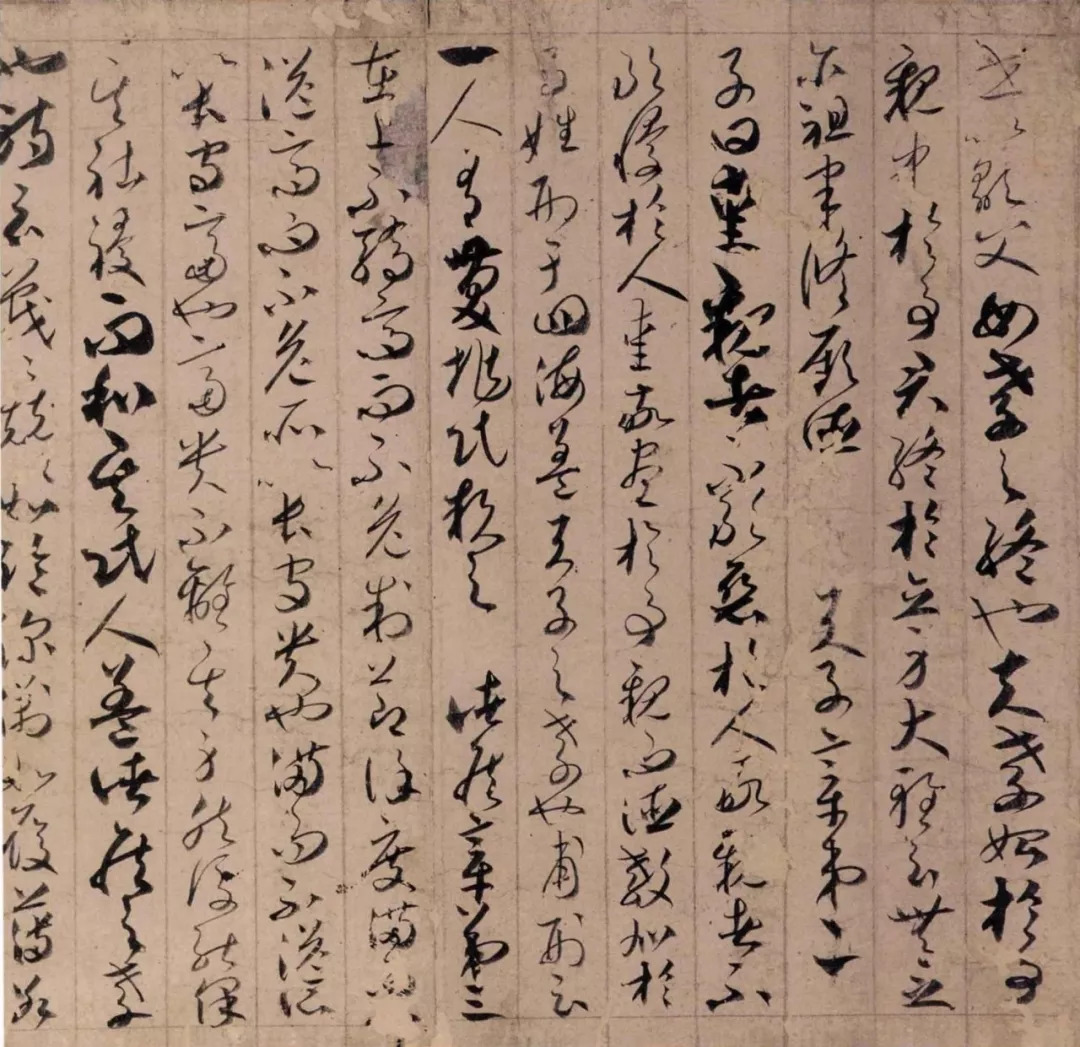 世以顯父母孝之終也夫孝始於事
親中於事君終於立身大雅云無念
尒祖聿脩厥德 天子章第二
子曰愛親者不敢惡於人敬親者不
敢慢於人愛敬盡於事親而德教加於
百姓刑于四海蓋天子之孝也甫刑云
一人有慶兆民賴之 諸侯章第三
在上不驕高而不危制節謹度滿而不
溢高而不危所以長守貴也滿而不溢所
以長守富也富貴不離其身然後能保
其社稷而和其民人蓋諸侯之孝
也詩云戰〻兢〻如臨深淵如履薄冰